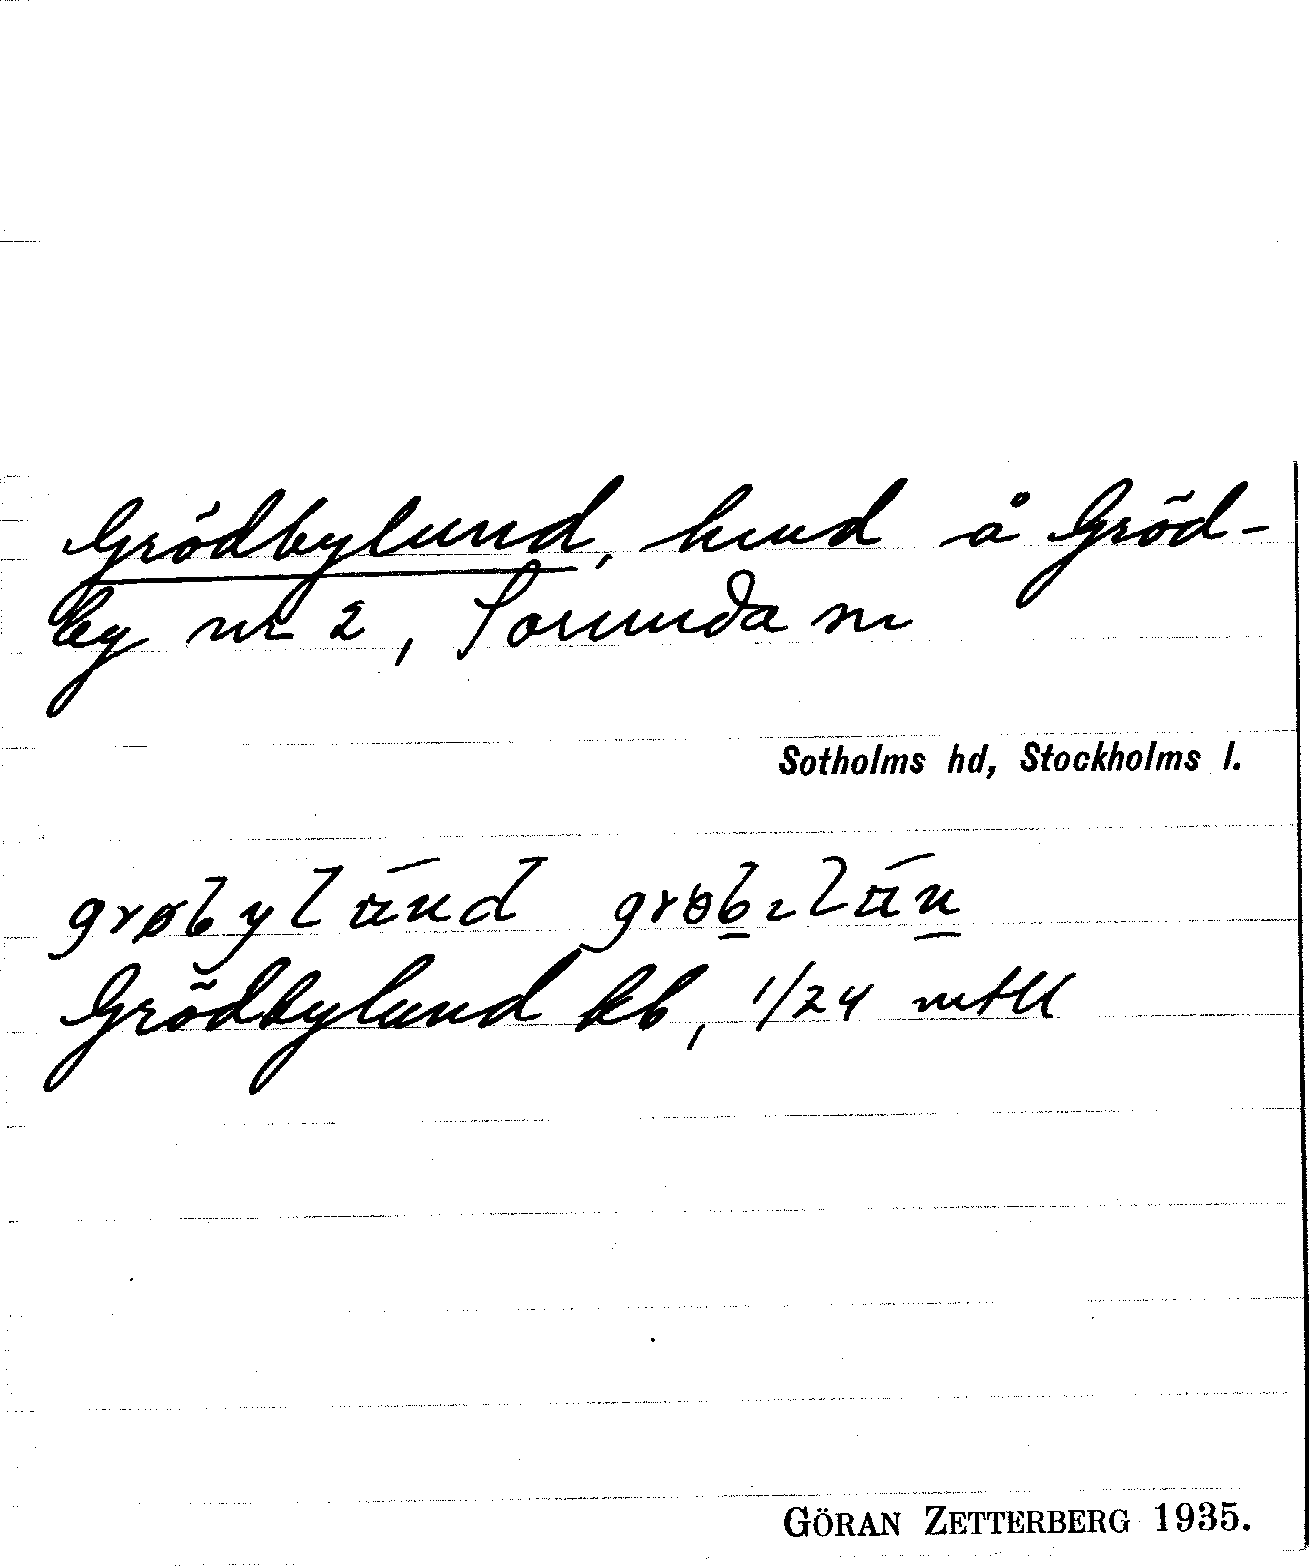 Grödbylund, hmd å Gröd-
by nr 2, Sorunda sn
Sotholms hd, Stockholms l.
Grödbylund kb, 1/24 mtll
GÖRAN ZETTERBERG 1935.